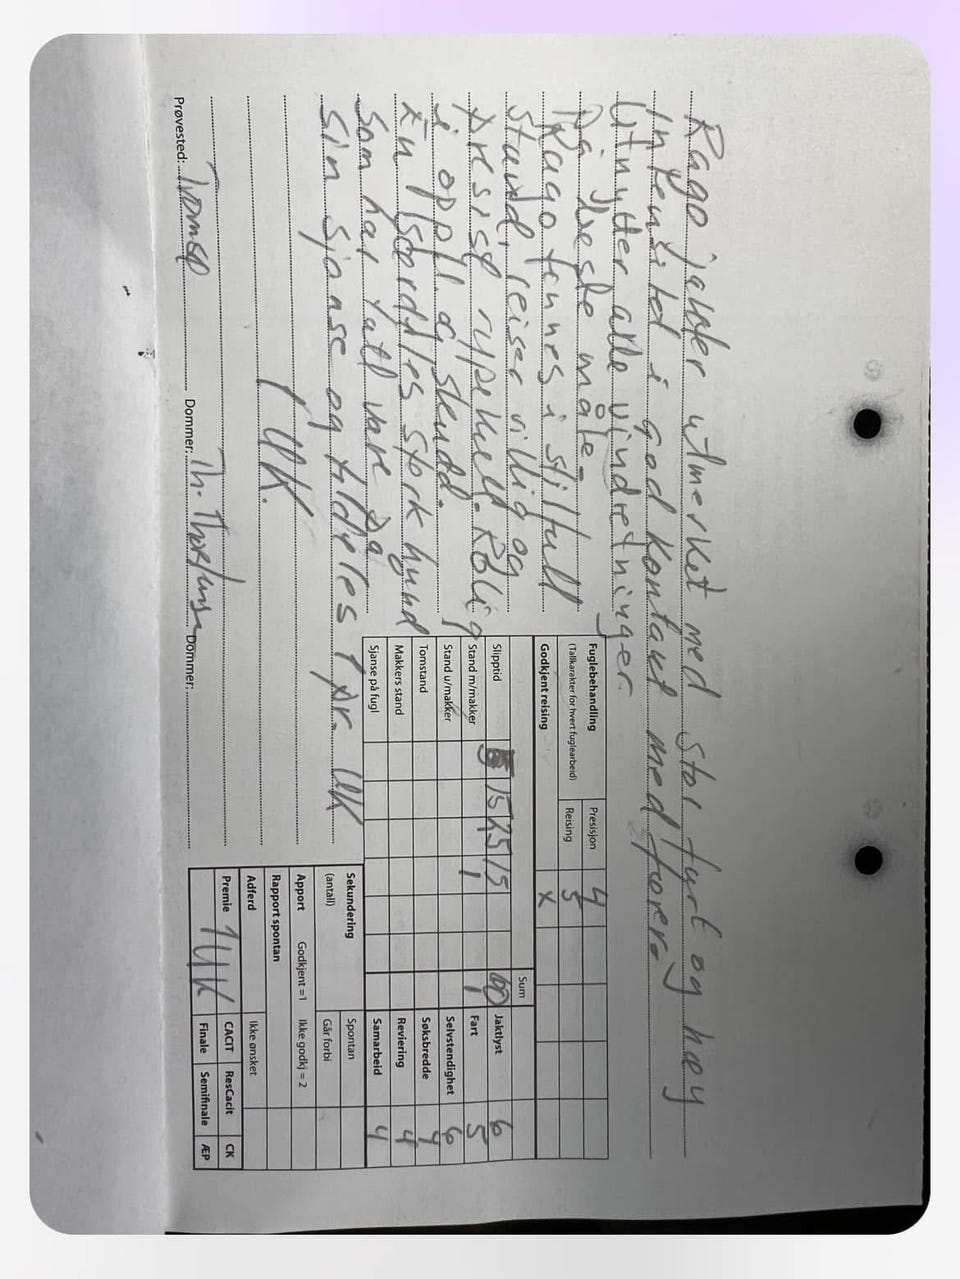 Rago jakter utmerket med stor fart og høy
intensitet i god kontakt med fører.
Utnytter alle vindretninger
på beste måte.
Rago finnes i stilfull
stand, reiser villig og
presist rypekull. Rolig
i oppfl. og skudd.
En særdeles sterk hund
som har tatt vare på
sin sjanse og tildeles 1 pr. UK
1 UK.
Prøvested: Tromsø Dommer: Th. Dommer:
Fuglebehandling
(Tallkarakter for hvert fuglearbeid)
Presisjon 4
Reising 5
Godkjent reising x
Sum
Slipptid 15 25 15 60
Stand m/makker 1 1
Stand u/makker
Tomstand
Makkers stand
Sjanse på fugl
Jaktlyst 6
Fart 5
Selvstendighet 6
Søksbredde 4
Reviering 4
Samarbeid 4
Sekundering (antall)
Spontan
Går forbi
Apport Godkjent =1 Ikke godkj = 2
Rapport spontan
Adferd Ikke ønsket
Premie 1UK
CACIT ResCacit CK
Finale Semifinale ÆP